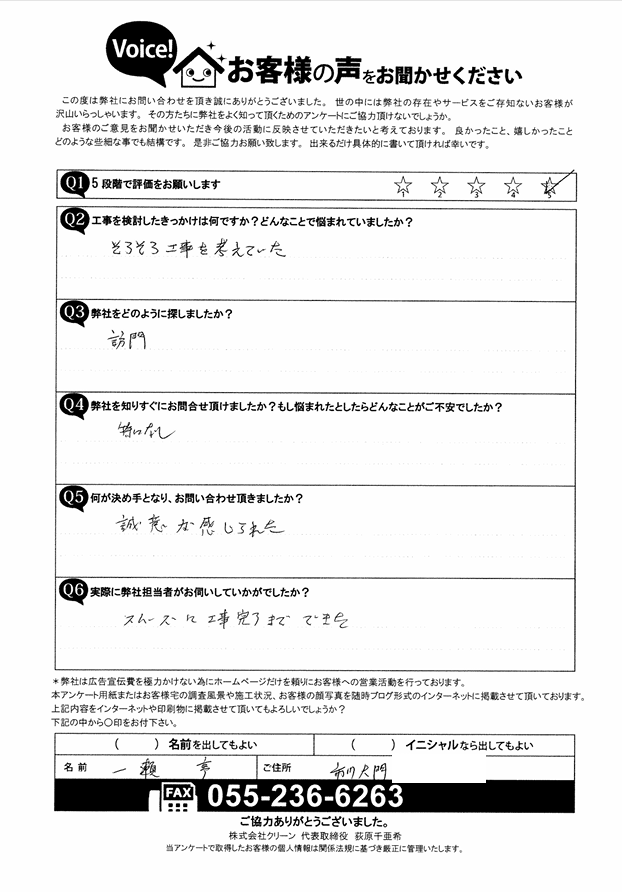 Voice!
お客様の声をお聞かせください
この度は弊社にお問い合わせを頂き誠にありがとうございました。世の中には弊社の存在やサービスをご存知ないお客様が
沢山いらっしゃいます。その方たちに弊社をよく知って頂くためのアンケートにご協力頂けないでしょうか。
お客様のご意見をお聞かせいただき今後の活動に反映させていただきたいと考えております。良かったこと、嬉しかったこと
どのような些細な事でも結構です。是非ご協力お願い致します。出来るだけ具体的に書いて頂ければ幸いです。
Q1 5段階で評価をお願いします
1 2 3 4 5
Q2 工事を検討したきっかけは何ですか?どんなことで悩まれていましたか?
そろそろ工事を考えていた
Q3 弊社をどのように探しましたか?
訪門
Q4 弊社を知りすぐにお問合せ頂けましたか?もし悩まれたとしたらどんなことがご不安でしたか?
特になし
Q5 何が決め手となり、お問い合わせ頂きましたか?
誠意が感じられた
Q6 実際に弊社担当者がお伺いしていかがでしたか?
スムーズに工事完了まで できた
*弊社は広告宣伝費を極力かけない為にホームページだけを頼りにお客様への営業活動を行っております。
本アンケート用紙またはお客様宅の調査風景や施工状況、お客様の顔写真を随時ブログ形式のインターネットに掲載させて頂いております。
上記内容をインターネットや印刷物に掲載させて頂いてもよろしいでしょうか?
下記の中から○印をお付下さい。
( ) 名前を出してもよい ( ) イニシャルなら出してもよい
名前 一瀬 亨 ご住所 市川大門
FAX 055-236-6263
ご協力ありがとうございました。
株式会社クリーン 代表取締役 荻原千亜希
当アンケートで取得したお客様の個人情報は関係法規に基づき厳正に管理いたします。